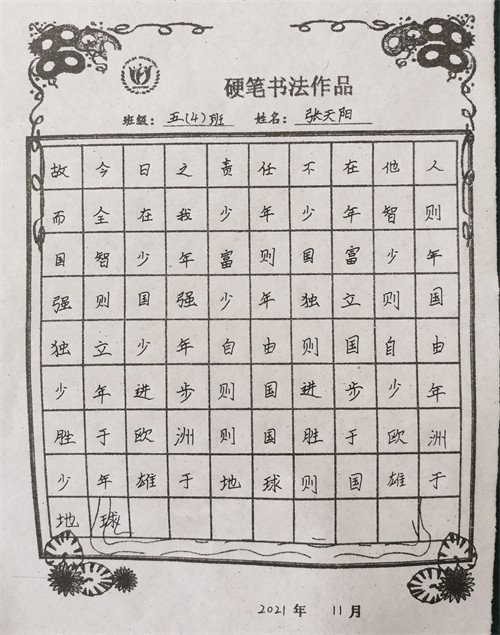 硬笔书法作品
班级：五（4）班 姓名：张天阳
故今日之责任不在他人
而全在我少年少年智则
国智少年富则国富少年
强则国强少年独立则国
独立少年自由则国自由
少年进步则国进步少年
胜于欧洲则国胜于欧洲
少年雄于地球则国雄于
地球
2021年 11月